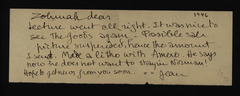 Zohmah dear. 1946
Lecture went all right. It was nice to
see the Goofs again. Possible sale
picture suspended, hence the amount
I send. Made a litho with Amero. He says
now he does not want to stay in Norman!
Hope to get news from you soon. Jean